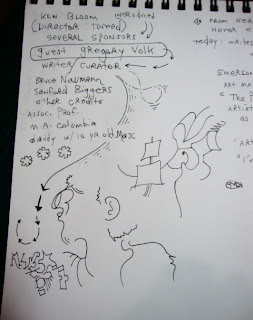 KEN BLOOM INTRODUCED
(DIRECTOR TWEED)
SEVERAL SPONSORS
guest GREGORY VOLK
WRITER/CURATOR
Bruce Naumann
Sanford Biggers
other credits
Assoc. Prof.
M.A. Colombia
daddy w/ 16 yr old Max
FROM
NEVER
today: WRITE
EMERSON
ART MA
"The P
ARTIST
as
"ART
"I'